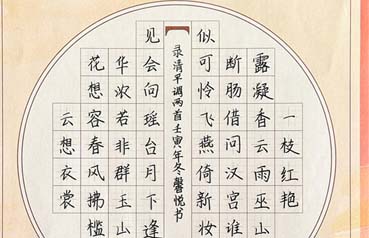 云想衣裳
花想容春风拂槛
华浓若非群玉山
见会向瑶台月下逢
一枝红艳
露凝香云雨巫山
断肠借问汉宫谁
似可怜飞燕倚新妆
录清平调两首壬寅年冬馨悦书